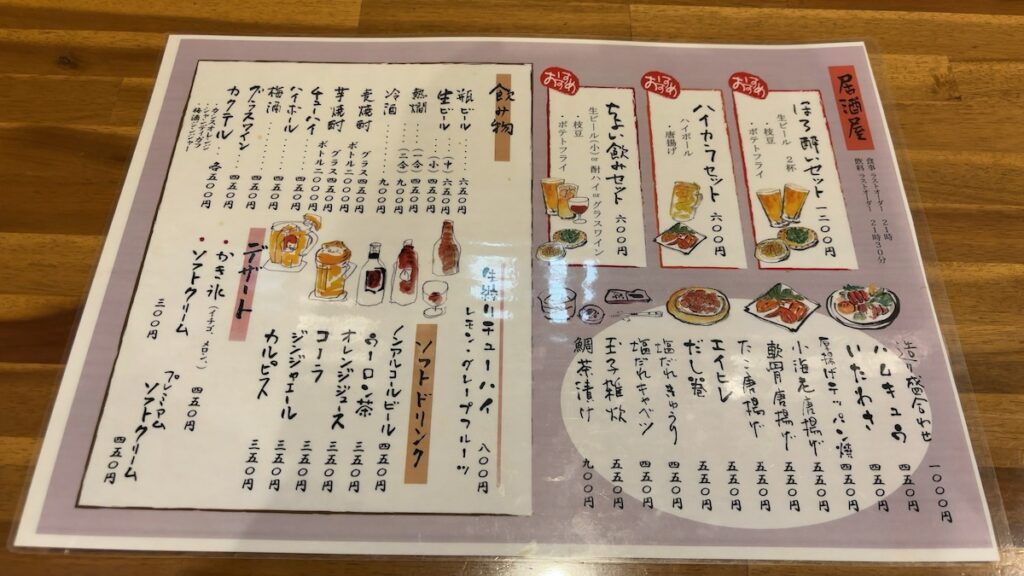 居酒屋
食事 ラストオーダー 21時
飲料 ラストオーダー 21時30分
おすすめ
ほろ酔いセット 一二〇〇円
生ビール 2杯
・枝豆
・ポテトフライ
おすすめ
ハイカラセット 六〇〇円
ハイボール
・唐揚げ
おすすめ
ちょい飲みセット 六〇〇円
生ビール(小)or酎ハイorグラスワイン
・枝豆
・ポテトフライ
造り盛合わせ 一〇〇〇円
ハムキュウ 四五〇円
いたわさ 四五〇円
厚揚げテッパン焼 四五〇円
小海老唐揚げ 五五〇円
軟骨唐揚げ 五五〇円
たこ唐揚げ 五五〇円
エイヒレ 五五〇円
だし巻 五五〇円
塩だれきゅうり 四五〇円
塩だれキャベツ 四五〇円
玉子雑炊 五五〇円
鯛茶漬け 九〇〇円
飲み物
瓶ビール 六五〇円
生ビール (中) 六五〇円
(小) 四五〇円
熱燗 (一合) 四五〇円
(二合) 九〇〇円
冷酒 九〇〇円
麦焼酎 グラス 四五〇円
ボトル 二〇〇〇円
芋焼酎 グラス 四五〇円
ボトル 二〇〇〇円
チューハイ 四五〇円
ハイボール 四五〇円
梅酒 四五〇円
グラスワイン 四五〇円
カクテル 各五〇〇円
・カシスオレンジ
・シャンディガフ
・梅酒ジンジャー
生搾りチューハイ 八〇〇円
レモン・グレープフルーツ
ソフトドリンク
ノンアルコールビール 四五〇円
ウーロン茶 三五〇円
オレンジジュース 三五〇円
コーラ 三五〇円
ジンジャエール 三五〇円
カルピス 三五〇円
デザート
・かき氷 (イチゴ、メロン) 四五〇円
・ソフトクリーム 三〇〇円
プレミアムソフトクリーム 四五〇円